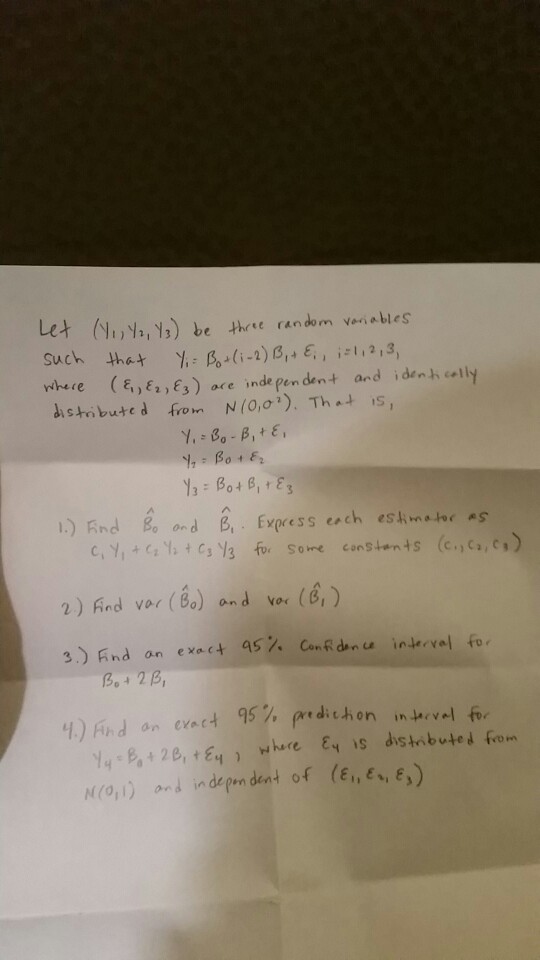 Let (Y₁, Y₂, Y₃) be three random variables
such that Yᵢ = B₀ + (i-2) B₁ + Eᵢ, i=1,2,3,
where (ε₁, ε₂, ε₃) are independent and identically
distributed from N(0,σ²). That is,
Y₁ = B₀ - B₁ + ε₁
Y₂ = B₀ + ε₂
Y₃ = B₀ + B₁ + ε₃
1.) Find B̂₀ and B̂₁. Express each estimator as
C₁Y₁ + C₂Y₂ + C₃Y₃ for some constants (C₁, C₂, C₃)
2.) Find var (B̂₀) and var (B̂₁)
3.) Find an exact 95% Confidence interval for
B₀ + 2B₁
4.) Find an exact 95% prediction interval for
Y₄ = B₀ + 2B₁ + ε₄, where ε₄ is distributed from
N(0,1) and independent of (ε₁, ε₂, ε₃)